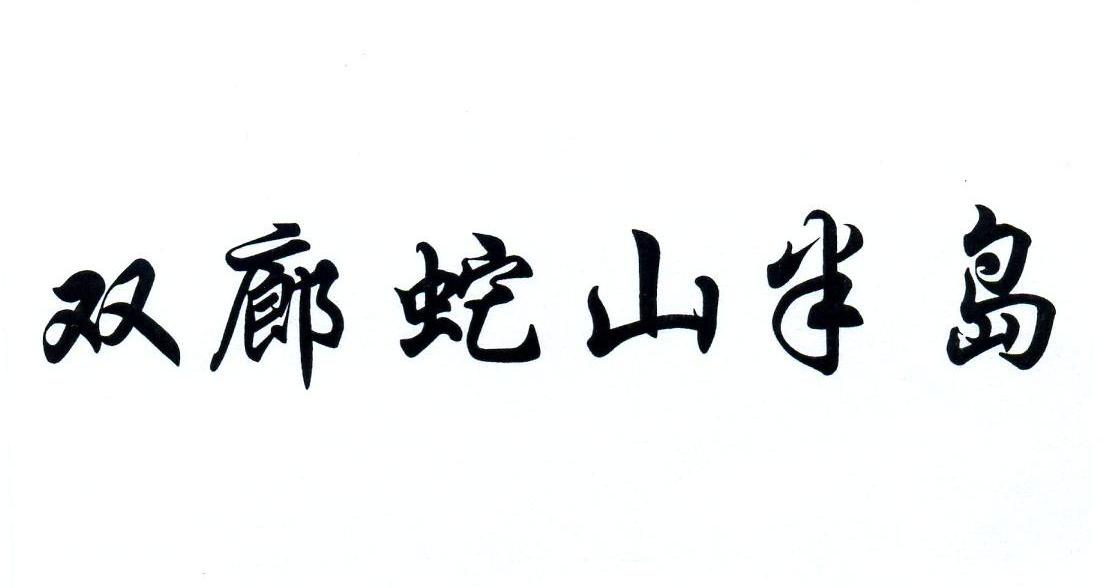 双廊蛇山半岛